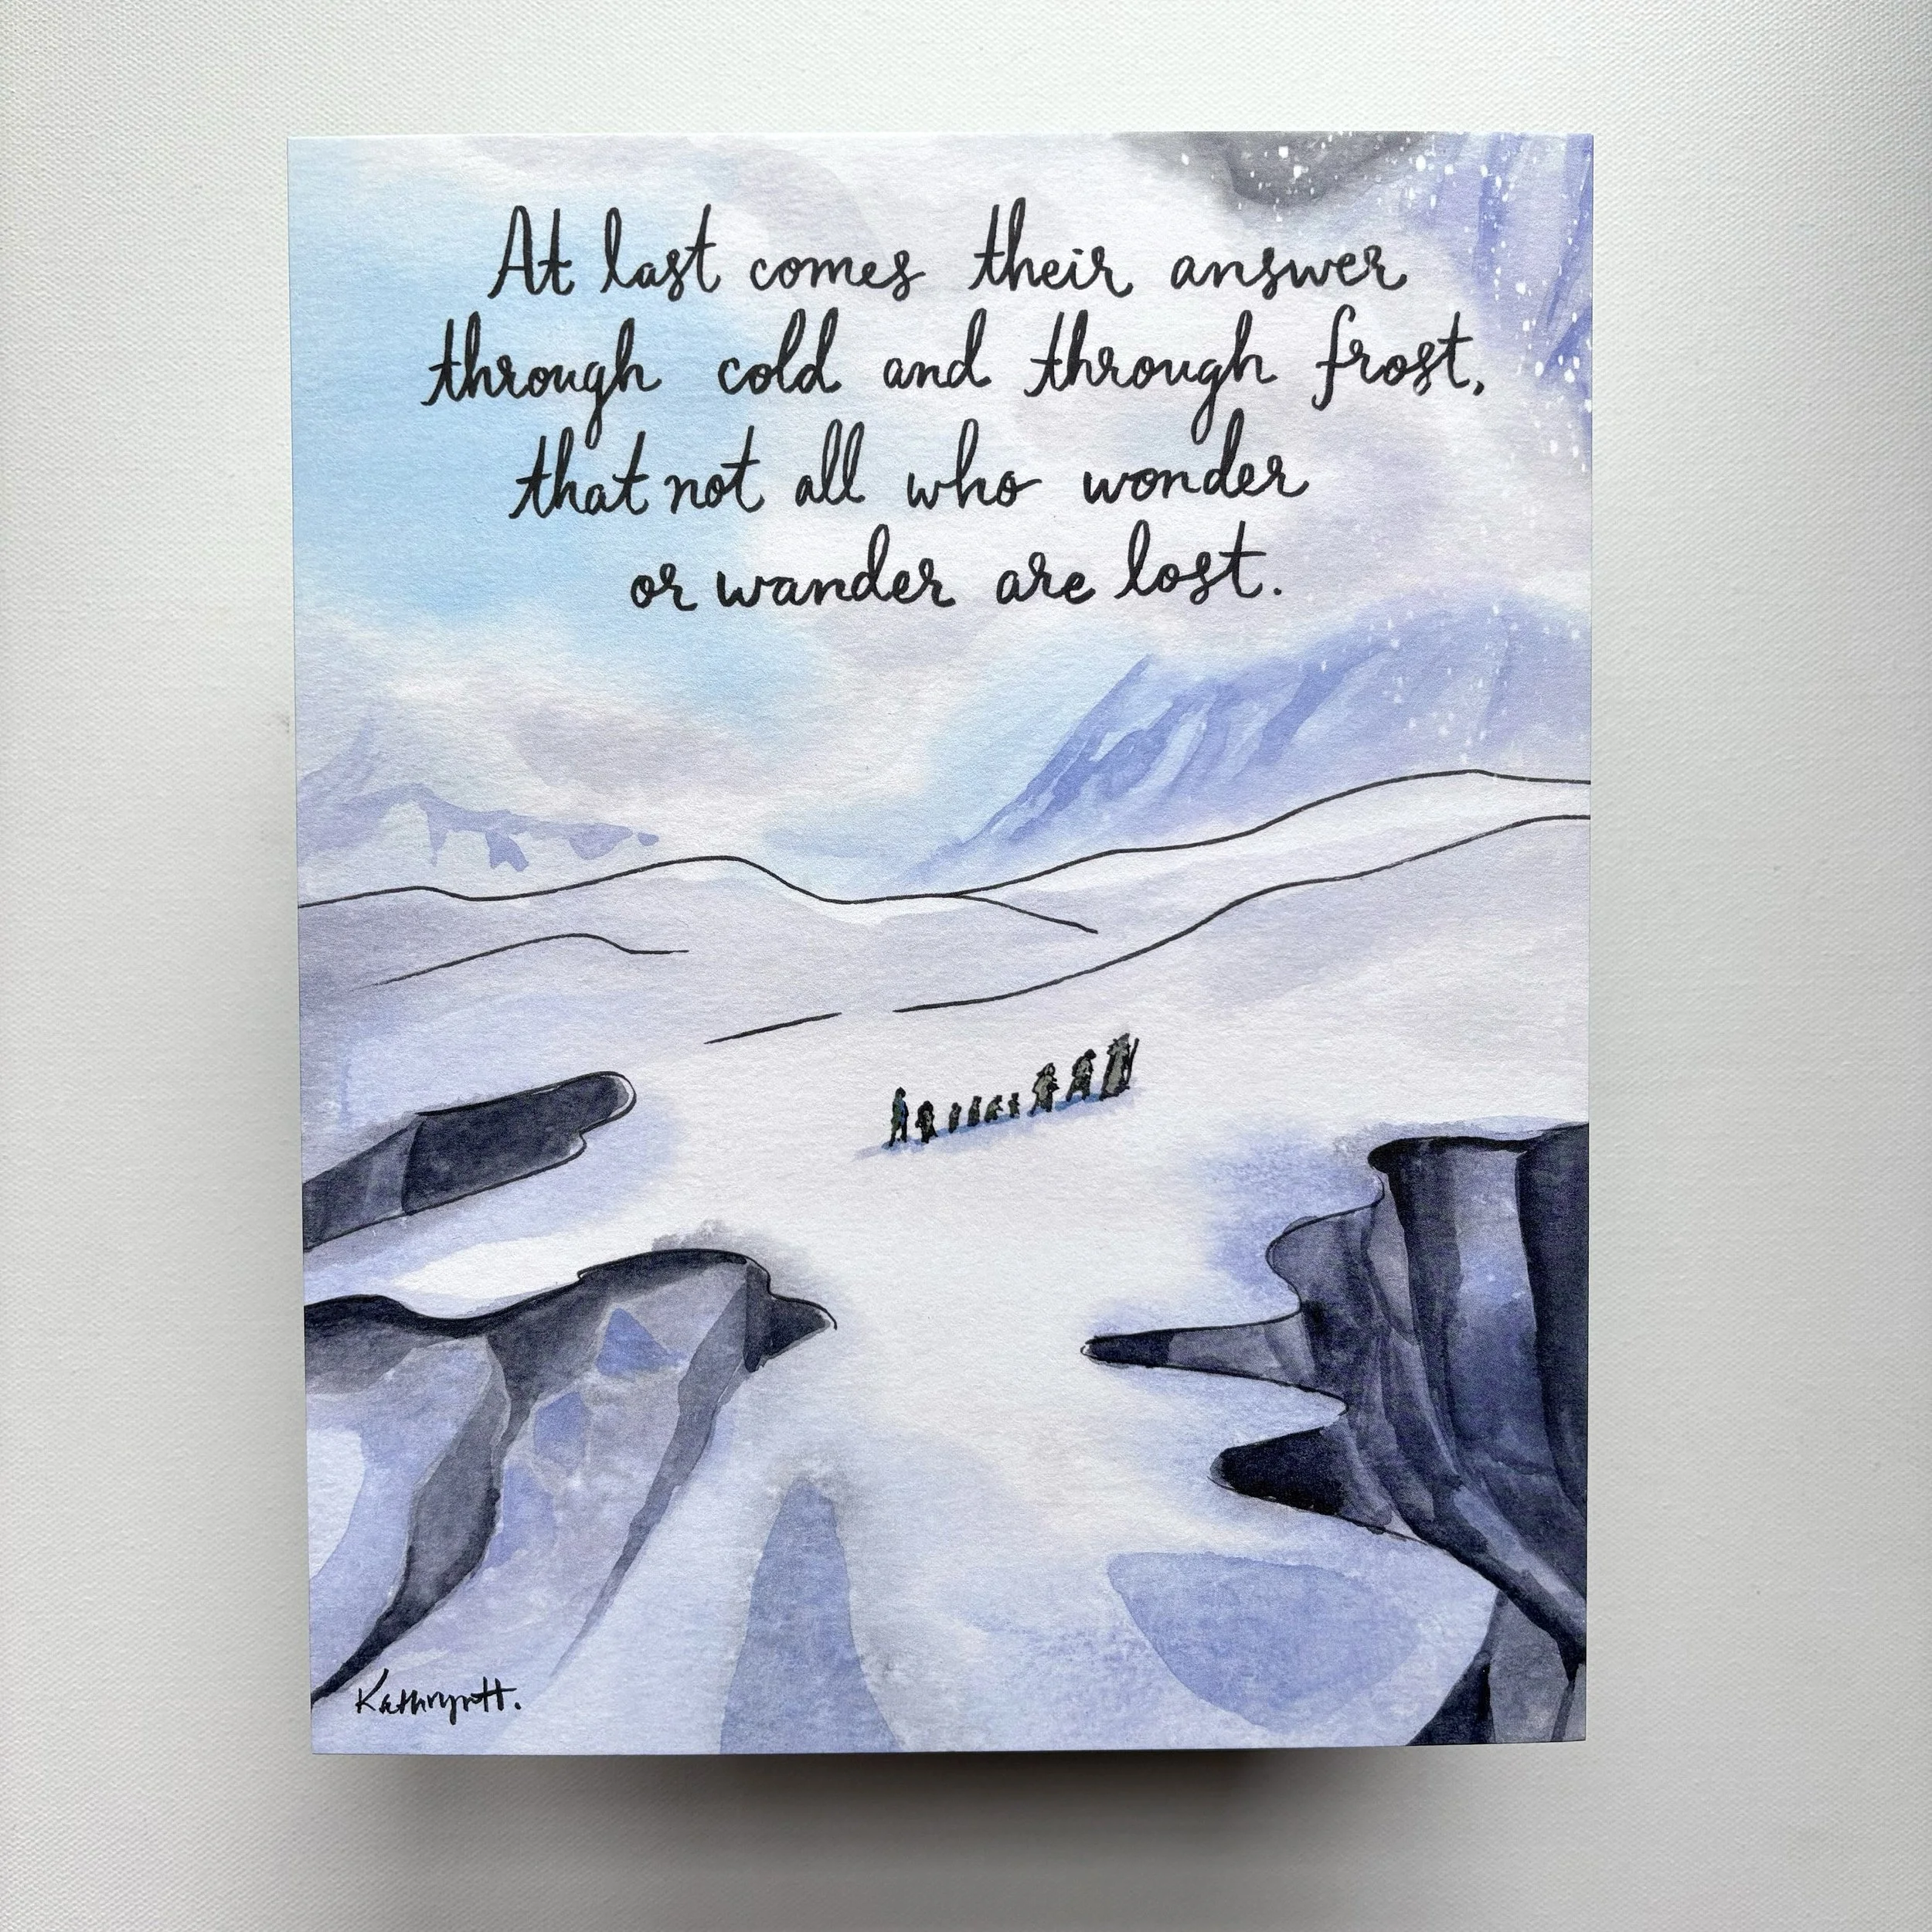 At last comes their answer
through cold and through frost,
that not all who wonder
or wander are lost.
KathrynH.